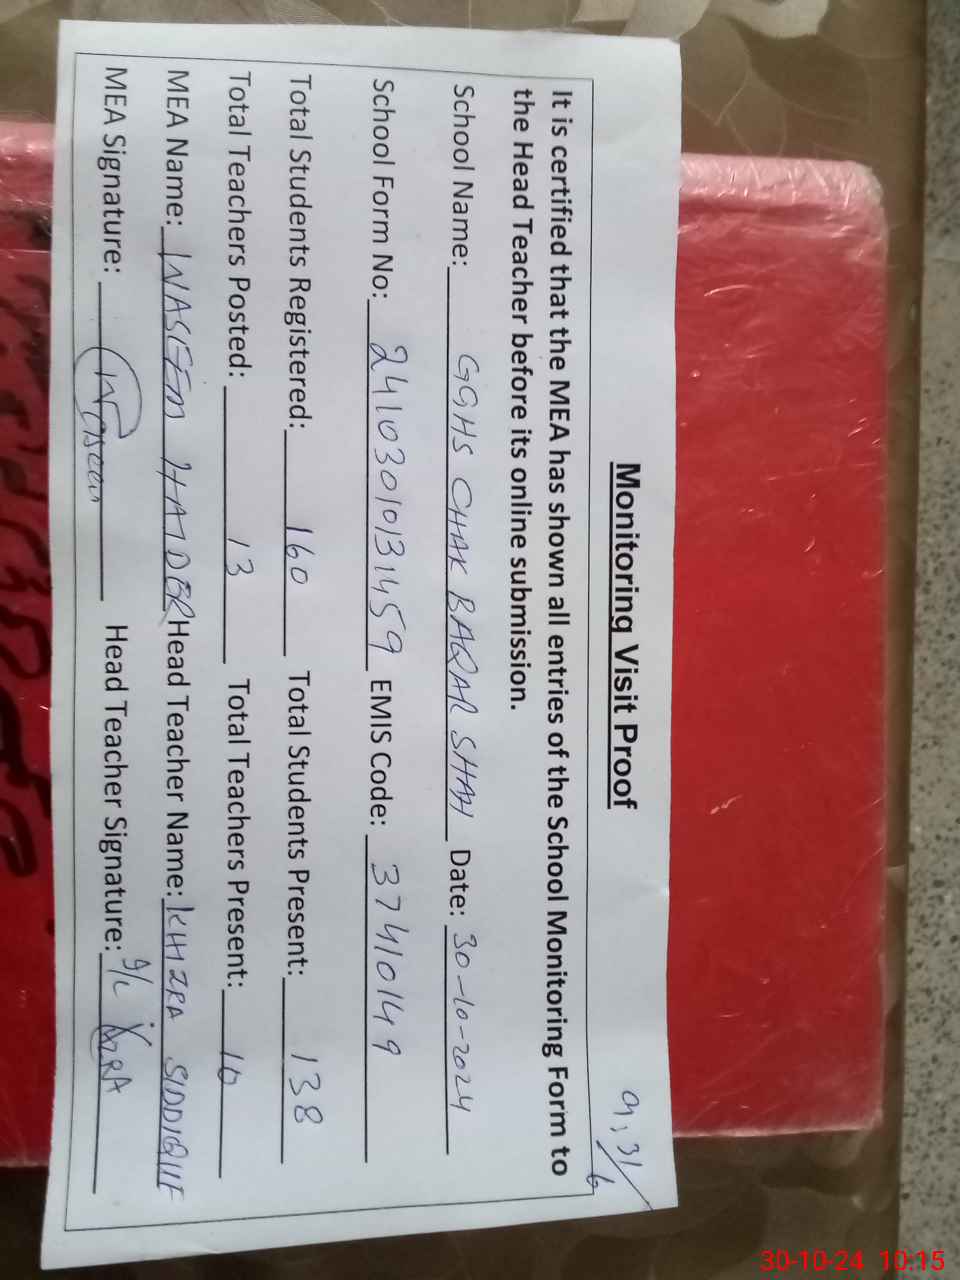 9,31/6
Monitoring Visit Proof
It is certified that the MEA has shown all entries of the School Monitoring Form to
the Head Teacher before its online submission.
School Name: GGHS CHAK BAQAR SHAH Date: 30-10-2024
School Form No: 24103010131459 EMIS Code: 37410149
Total Students Registered: 160 Total Students Present: 138
Total Teachers Posted: 13 Total Teachers Present: 10
MEA Name: WASEEM HAIDER Head Teacher Name: KHIZRA SIDDIQUE
MEA Signature: Waseem Head Teacher Signature:
30-10-24 10:15